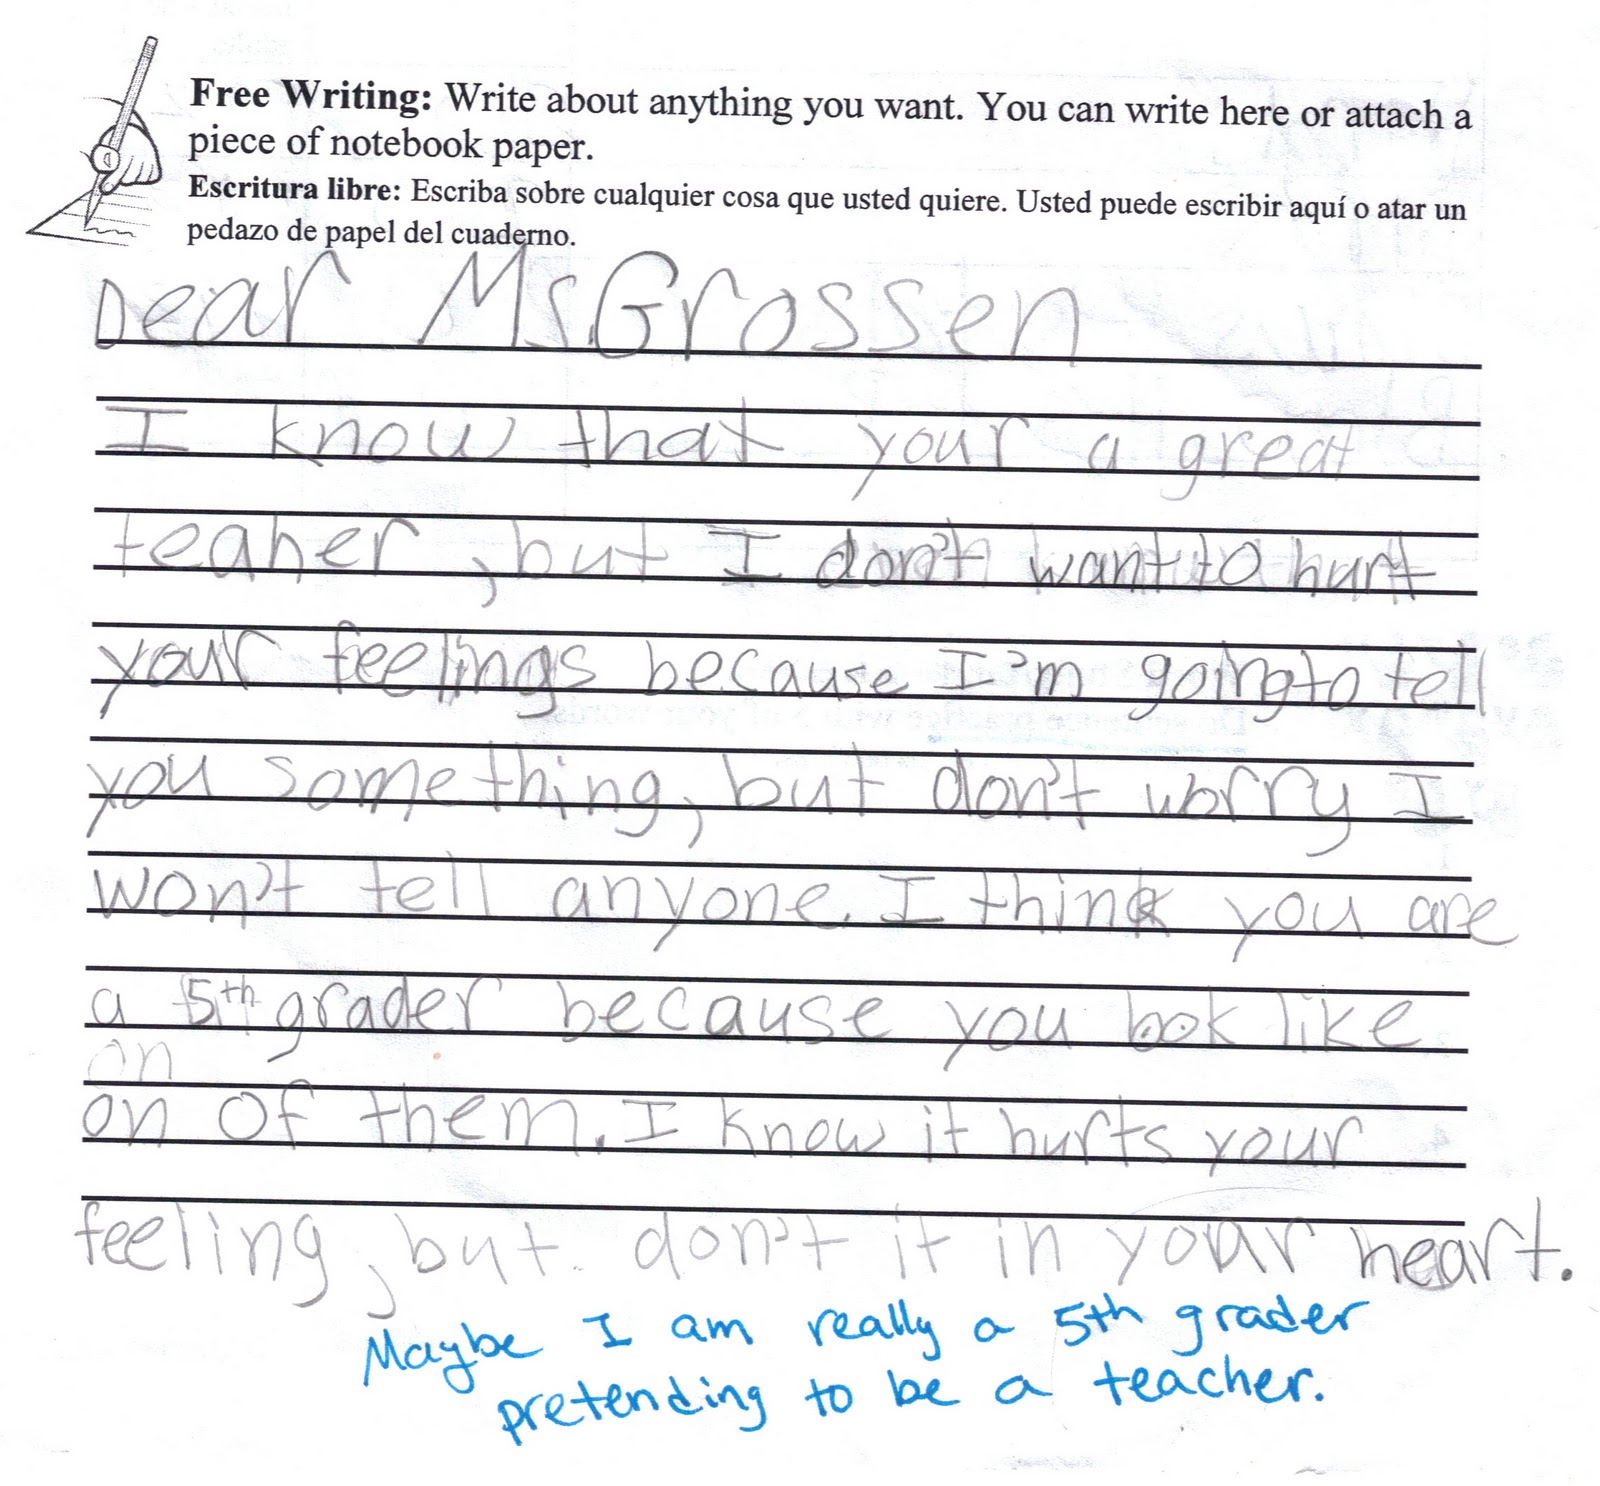 Free Writing: Write about anything you want. You can write here or attach a
piece of notebook paper.
Escritura libre: Escriba sobre cualquier cosa que usted quiere. Usted puede escribir aquí o atar un
pedazo de papel del cuaderno.
Dear Ms.Grossen
I know that your a great
teaher, but I don't want to hurt
your feelings because I'm going to tell
you something, but don't worry I
won't tell anyone. I think you are
a 5th grader because you look like
on
on of them. I know it hurts your
feeling, but don't it in your heart.
Maybe I am really a 5th grader
pretending to be a teacher.